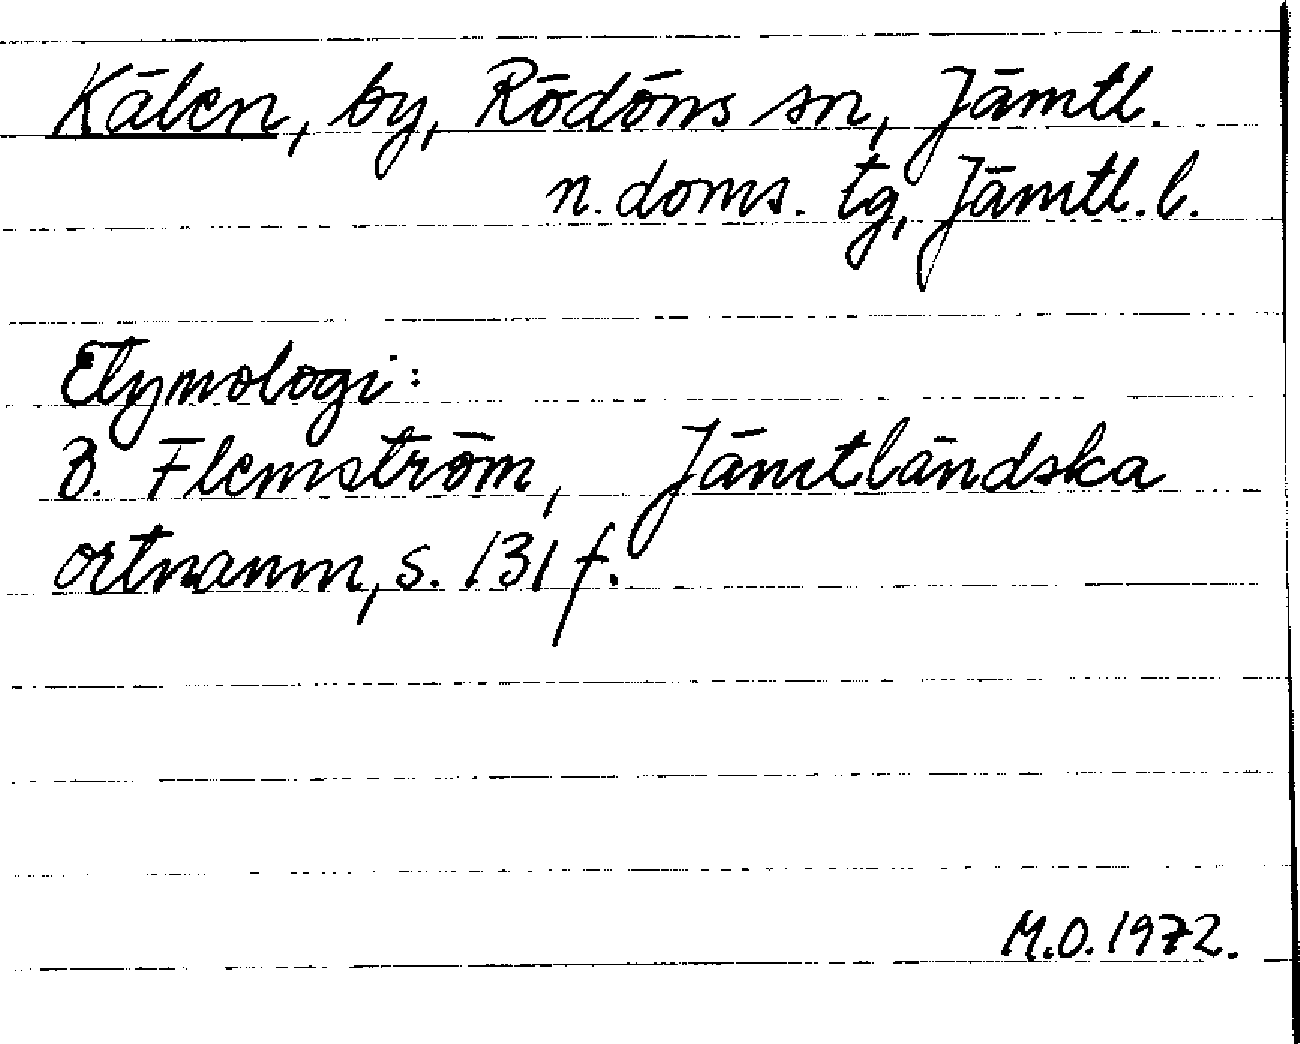 Kälen, by, Rödöns sn, Jämtl.
n. doms. tg, Jämtl. l.
Etymologi:
B. Flemström, Jämtländska
ortnamn, s. 131 f.
M.O. 1972.